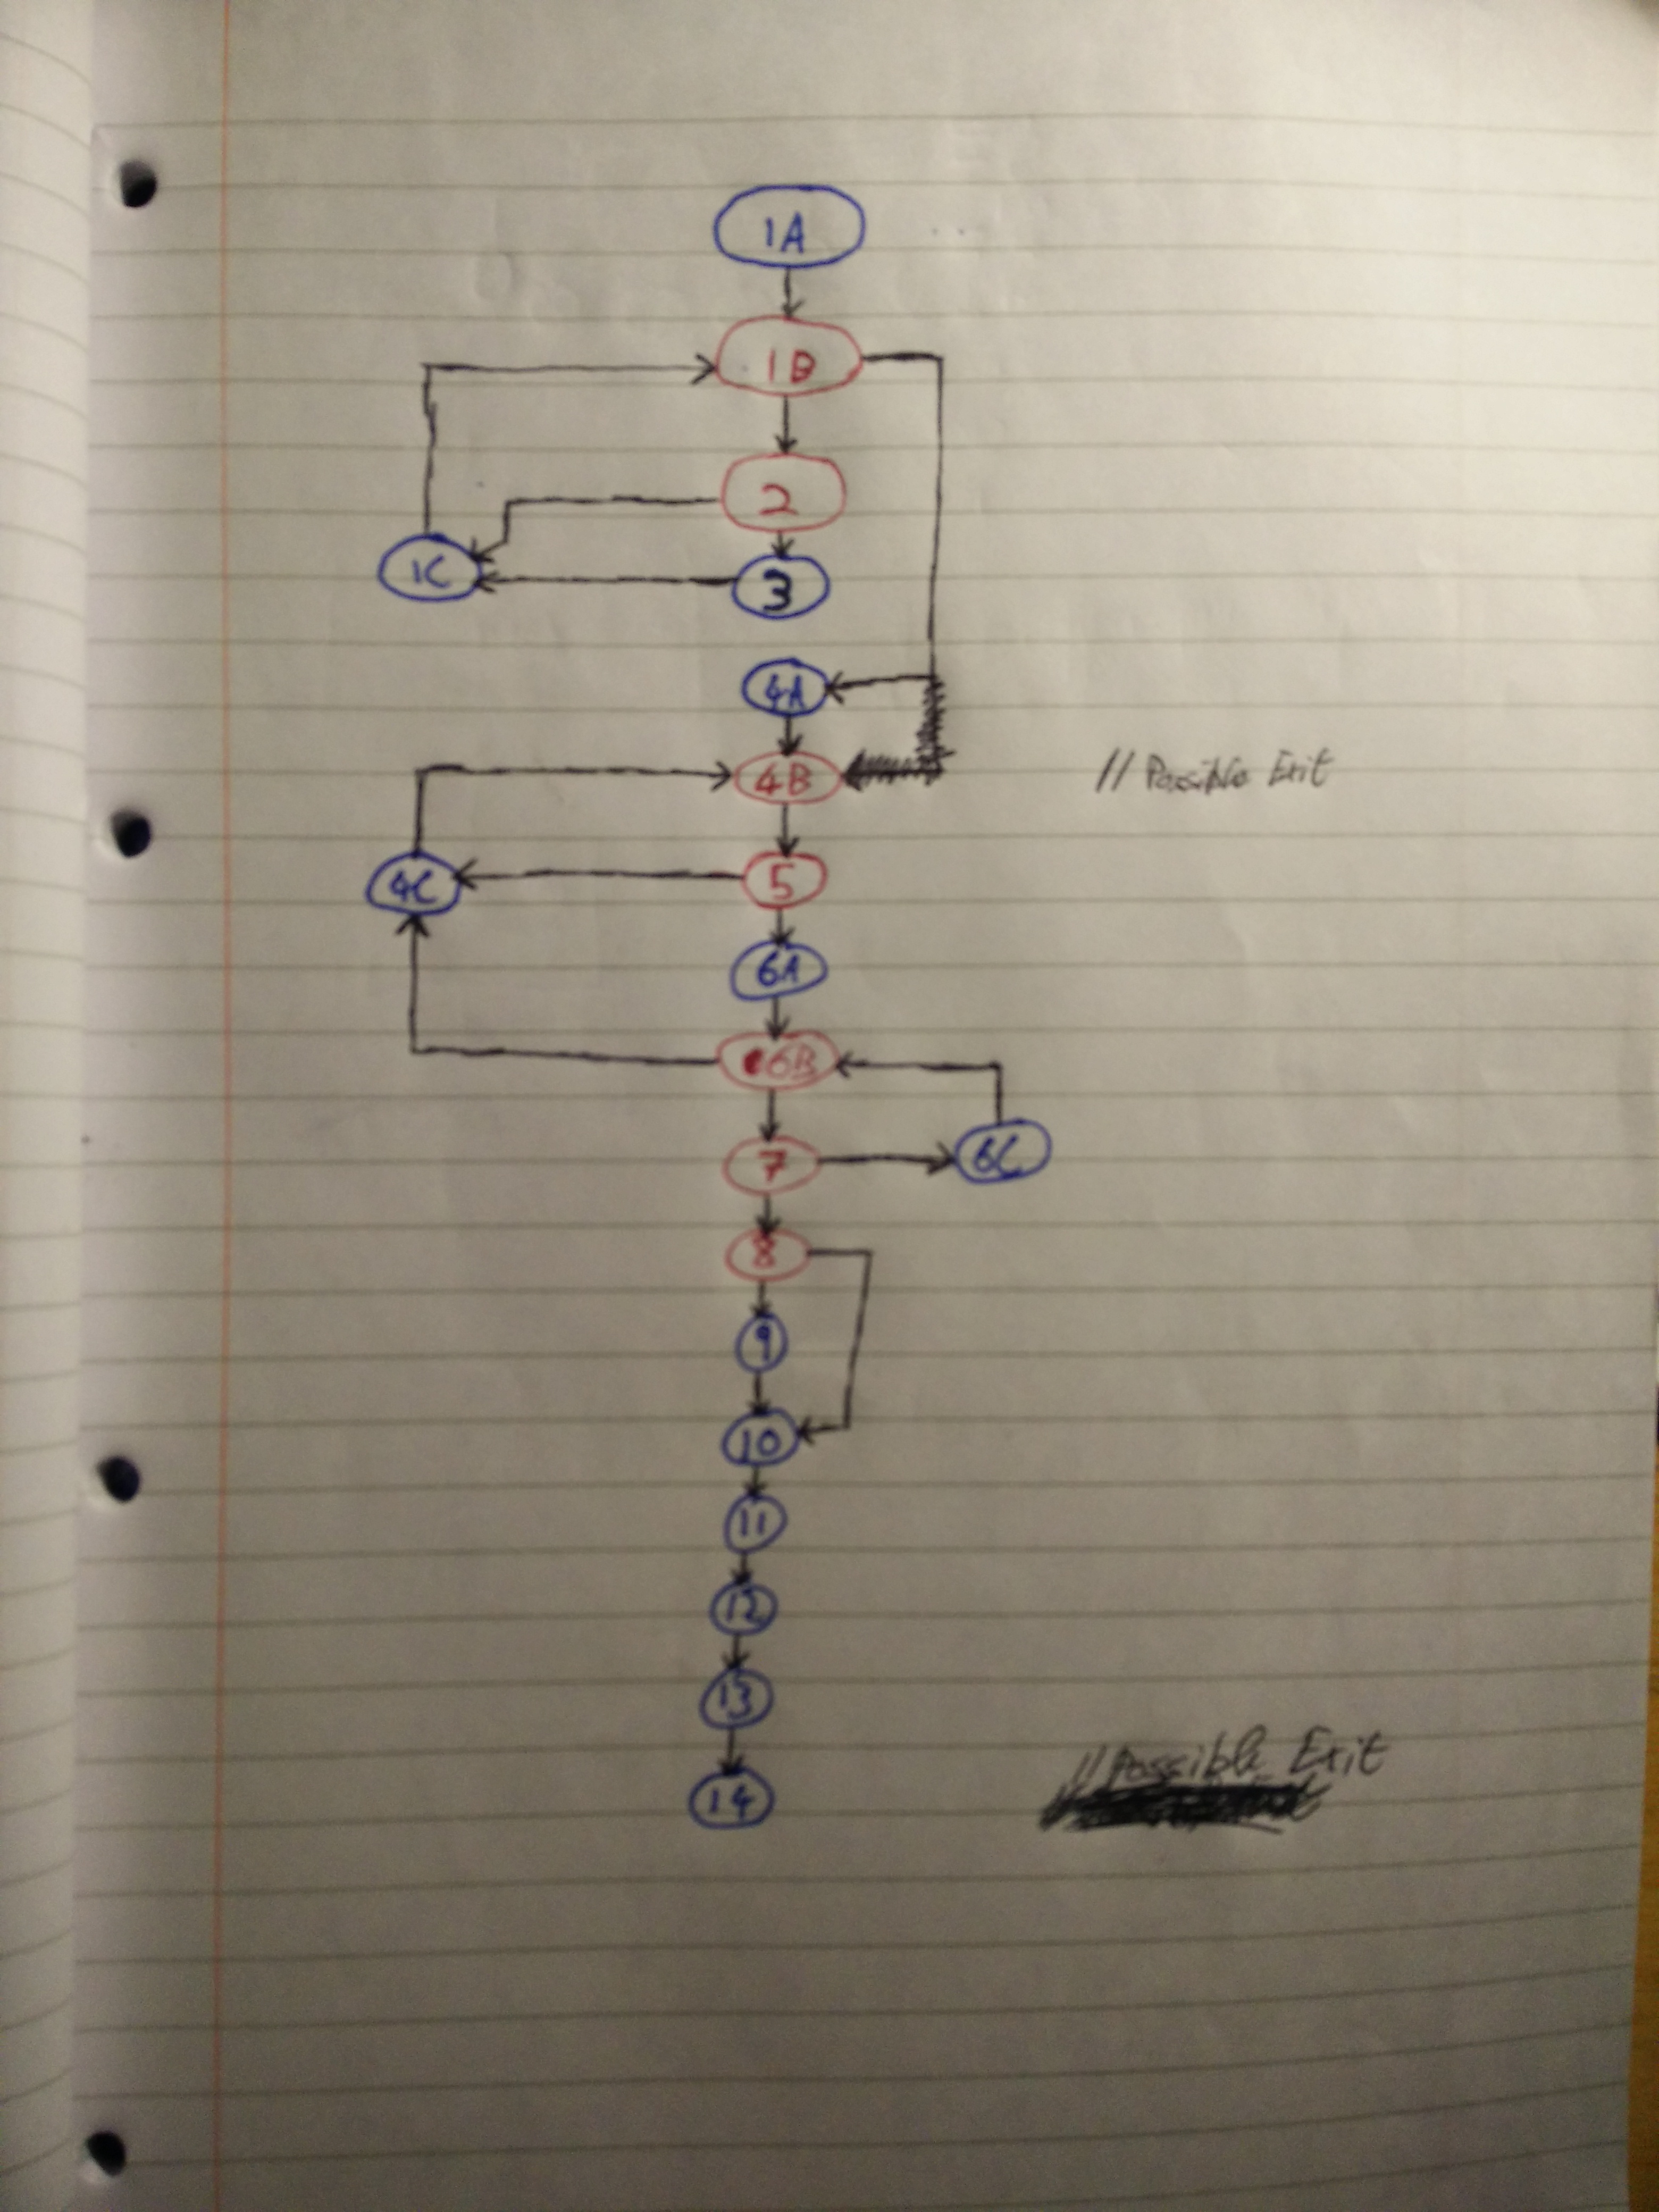 1A
1B
2
1C
3
4A
4B // Possible Exit
4C
5
6A
6B
7
6C
8
9
10
11
12
13
// Possible Exit
14